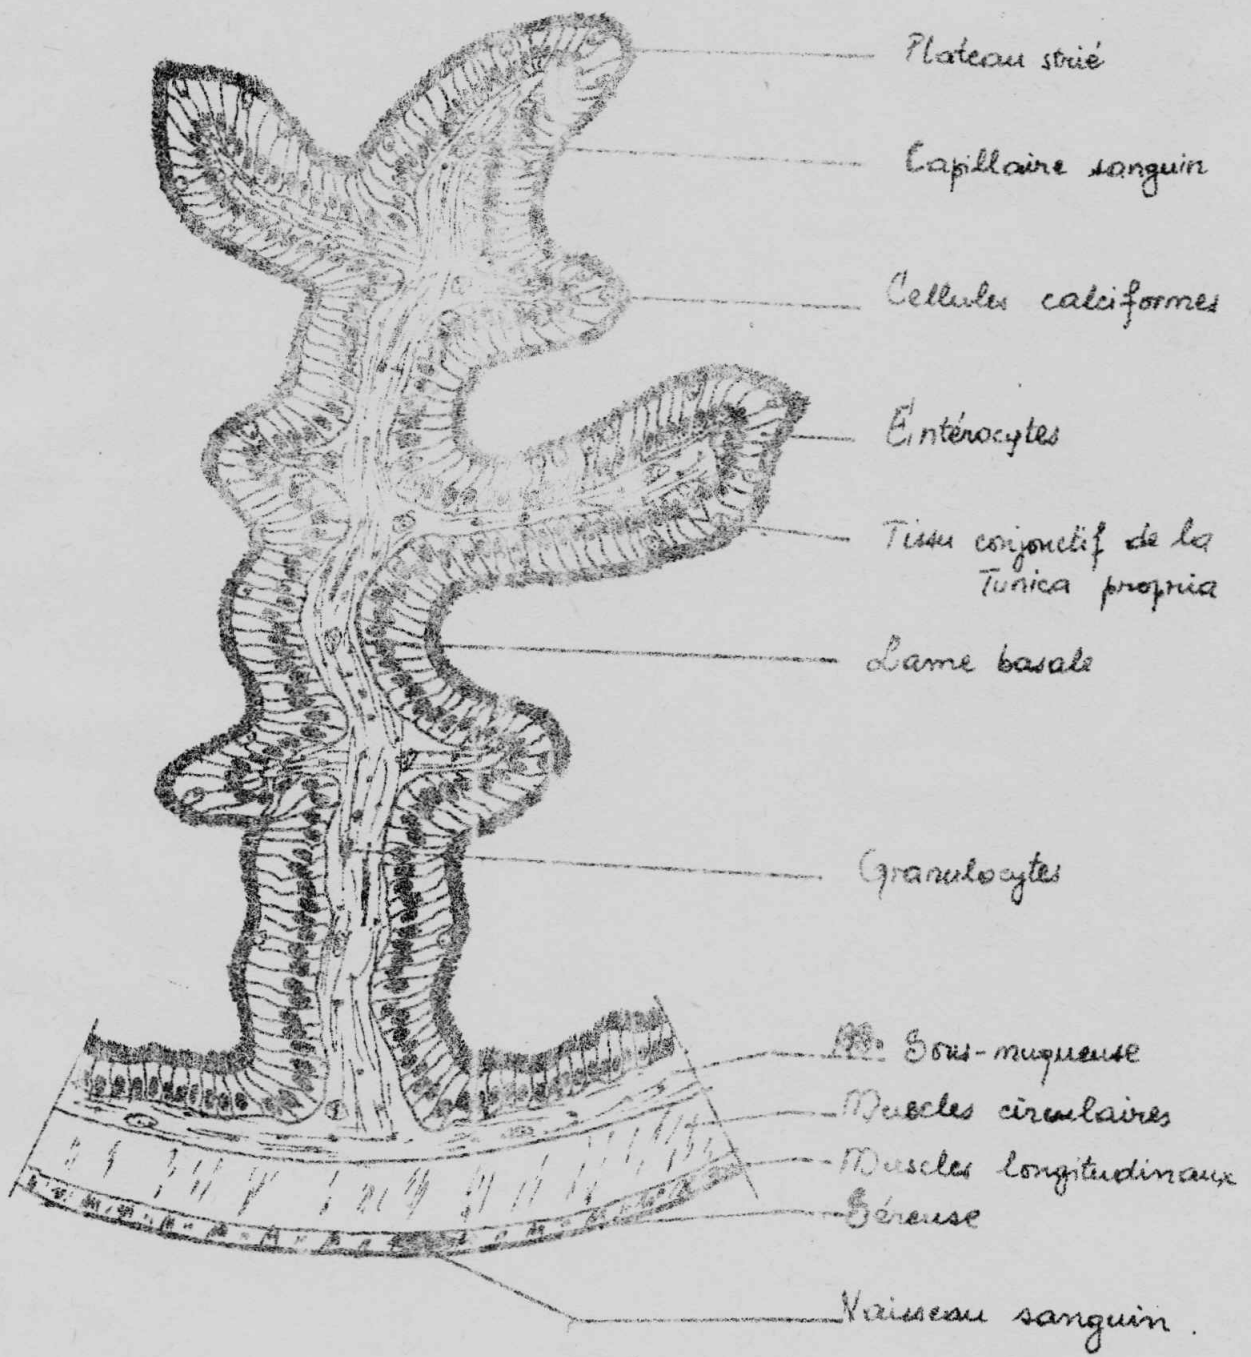 Plateau strié
Capillaire sanguin
Cellules calciformes
Entérocytes
Tissu conjonctif de la
Tunica propria
Lame basale
Granulocytes
Sous-muqueuse
Muscles circulaires
Muscles longitudinaux
Séreuse
Vaisseau sanguin.